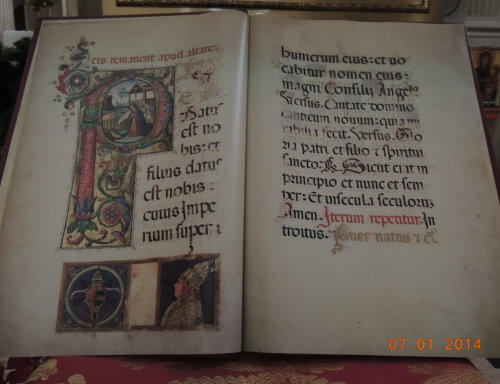 remanent apud altare:
P
natus
est no
bis: et
filius datus
est nobis:
cuius Impe
rium super
humerum eius: et uo
cabitur nomen eius:
magni Consilii
Versus. Cantate domino
canticum nouum: quia mi
rabilia fecit. Versus. Glo
ria patri et filio ⁊ spiritui
sancto: Sicut erat in
principio et nunc et sem
per: Et insecula seculorum
Amen. Iterum repetitur. In
troitus. Puer natus
07 01 2014